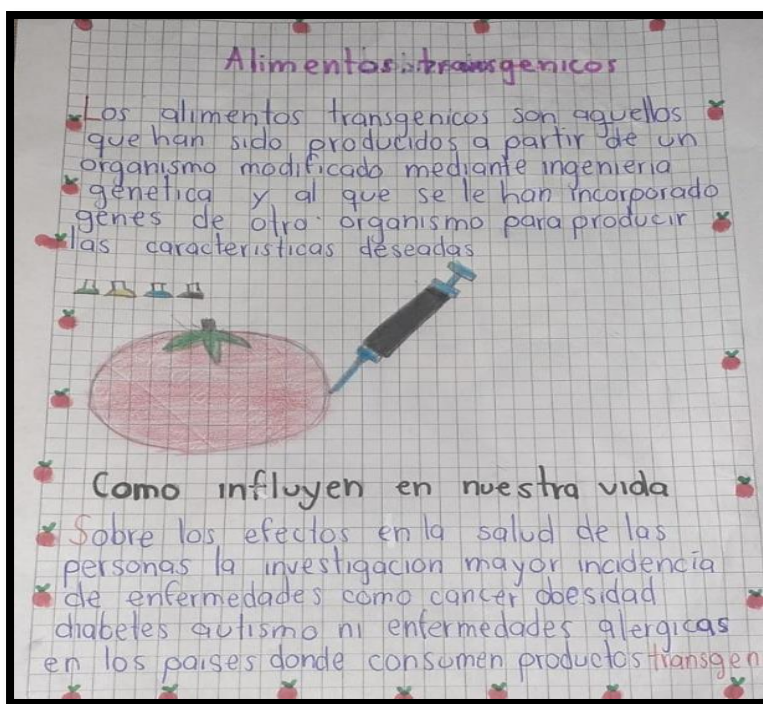 Alimentos transgenicos
Los alimentos transgenicos son aquellos
que han sido producidos a partir de un
organismo modificado mediante ingenieria
genetica y al que se le han incorporado
genes de otro organismo para producir
las caracteristicas deseadas
Como influyen en nuestra vida
Sobre los efectos en la salud de las
personas la investigacion mayor incidencia
de enfermedades como cancer obesidad
diabetes autismo ni enfermedades alergicas
en los paises donde consumen productos transgen